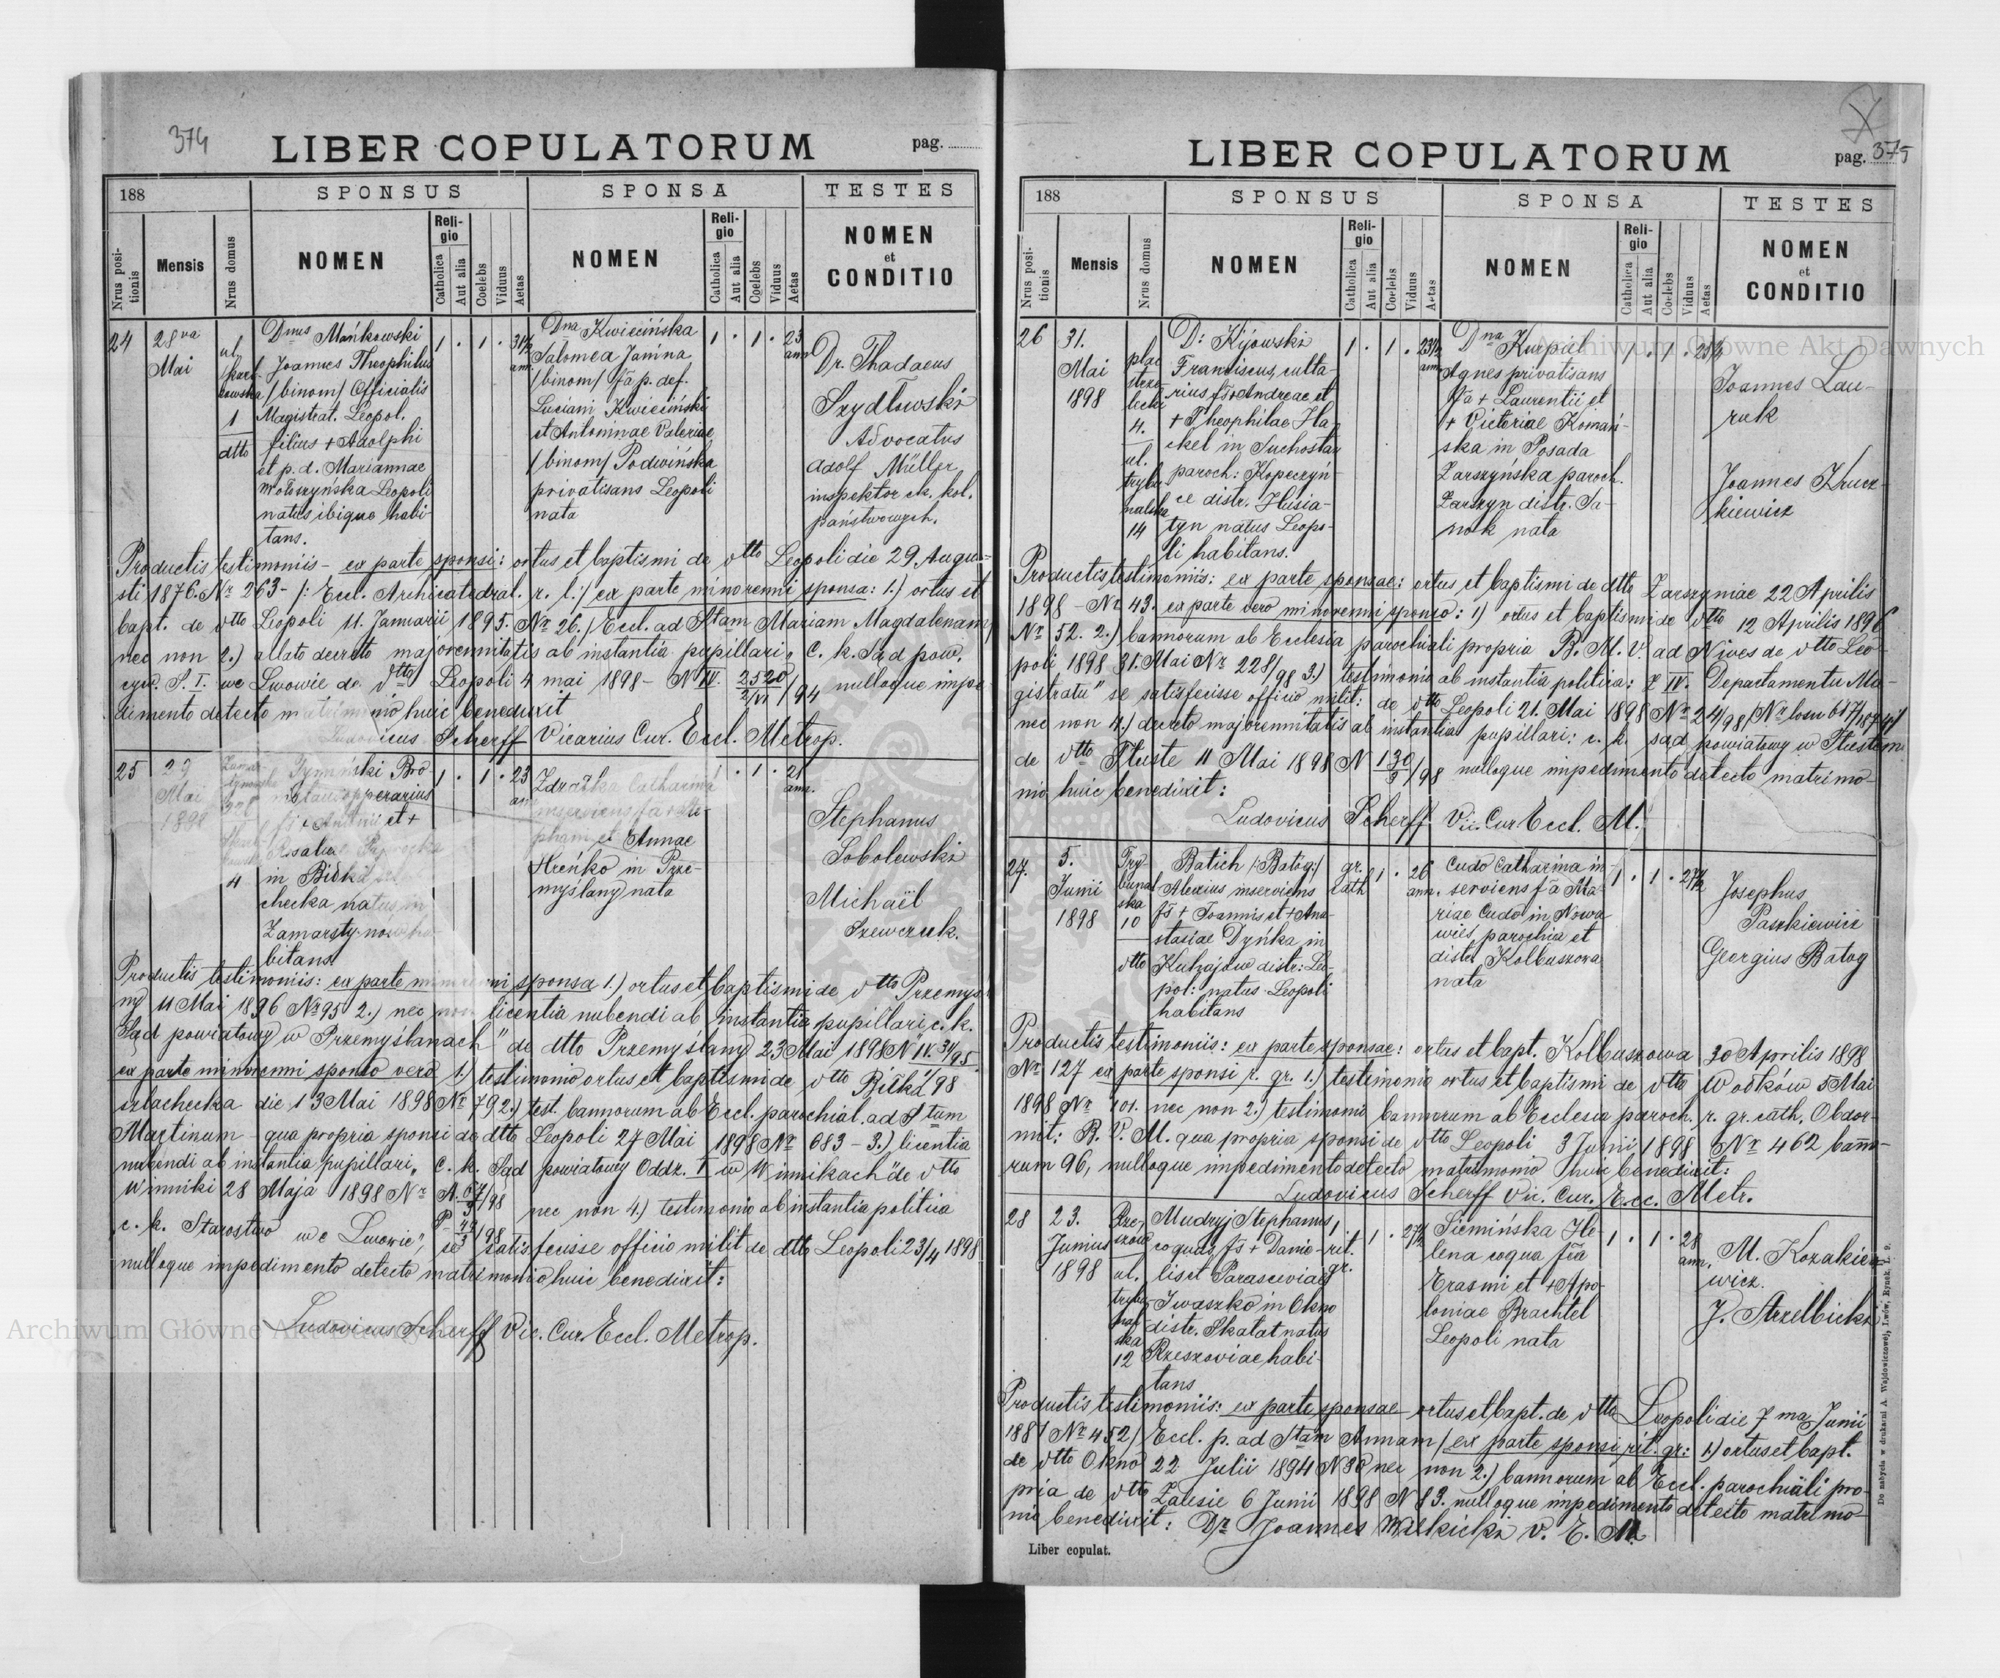 374
LIBER COPULATORUM
pag.
188
SPONSUS
SPONSA
TESTES
Nrus positionis
Mensis
Nrus domus
NOMEN
Religio
Catholica
Aut alia
Coelebs
Viduus
Aetas
NOMEN
Religio
Catholica
Aut alia
Coelebs
Viduus
Aetas
NOMEN
et
CONDITIO
24
28va
Mai
ul.
1
dtto
Dnus Mańkowski
Joannes Theophilus
/binom/ Officialis
Magistrat. Leopol.
filius + Adolphi
et p. d. Mariannae
Leopoli
natus ibique habi-
tans.
1 . 1 . 31½
ann.
Dna Kwiecińska
Salomea Janina
/binom/ fa p. def.
Luciani Kwieciński
et Antoninae Valeriae
/binom/ Podwińska
privatisans Leopoli
nata
1 . 1 . 23
ann
Dr. Thadaeus
Szydłowski
Advocatus
Adolf Müller
inspektor ck. kol.
państwowych.
Productis testimoniis - ex parte sponsi: ortus et baptismi de dtto Leopoli die 29 Augu-
sti 1876. Nr 263 - /: Eccl. Archicatedral. r. l.:/ ex parte minorenni sponsa: 1.) ortus et
bapt. de dtto Leopoli 11. Januarii 1895. Nr 26. / Eccl. ad Stam Mariam Magdalenam/
nec non 2.) allato decreto majorennitatis ab instantia pupillari, C. k. Sąd pow.
cyw. S. I. we Lwowie de dtto Leopoli 4 mai 1898 - N IV. 2520/94 nulloque impe-
dimento detecto matrimonio huic benedixit
Ludovicus Scherff Vicarius Cur. Eccl. Metrop.
25
29
Mai
1898
4
operarius
fs + Antonii et +
Rosaliae
in Biłka szla-
checka natus in
Zamarstynow ha-
bitans
1 . 1 . 23
an
Catharina
inserviens fa + Ste-
phani et Annae
Hreńko in Prze-
myślany nata
. 1 . 21
ann.
Stephanus
Sobolewski
Michaël
Szewczuk.
Productis testimoniis: ex parte minorenni sponsa 1.) ortus et baptismi de dtto Przemyśla-
ny 11 Mai 1896 Nr 95 2.) nec non licentia nubendi ab instantia pupillari c. k.
Sąd powiatowy w Przemyślanach" de dtto Przemyślany 23 Mai 1898 N IV. 34/95
ex parte minorenni sponso vero 1.) testimonio ortus et baptismi de dtto Biłka 98
szlachecka die 13 Mai 1898 Nr 79 2.) test. bannorum ab Eccl. parochial. ad Stum
Martinum qua propria sponsi de dtto Leopoli 27 Mai 1898 Nr 683 - 3.) licentia
nubendi ab instantia pupillari, C. k. Sąd powiatowy Oddz. I w Winnikach" de dtto
Winniki 28 Maja 1898 Nr nec non 4.) testimonio ab instantia politica
c. k. Starostwo we Lwowie", se satisfecisse officio milit de dtto Leopoli 23/4 1898
nulloque impedimento detecto matrimonio huic benedixit:
Ludovicus Scherff Vic. Cur. Eccl. Metrop.
LIBER COPULATORUM
pag. 375
188
SPONSUS
SPONSA
TESTES
Nrus positionis
Mensis
Nrus domus
NOMEN
Religio
Catholica
Aut alia
Coelebs
Viduus
Aetas
NOMEN
Religio
Catholica
Aut alia
Coelebs
Viduus
Aetas
NOMEN
et
CONDITIO
26
31.
Mai
1898
plac
strze-
lecki
4.
ul.
trybu-
nalska
14
D: Kijowski
Franciscus, culta-
rius fs + Andreae et
+ Theophilae Ha-
ckel in Suchostaw
paroch: Kopeczyń-
ce distr. Husia-
tyn natus Leopo-
li habitans.
1 . 1 . 23½
ann
Dna Kurpiel
Agnes privatisans
fa + Laurentii et
+ Victoriae Romań-
ska in Posada
Zarszyńska paroch.
Zarszyn distr. Sa-
nok nata
1 . 1 .
Joannes Lau-
ruk
Joannes Krucz-
kiewicz
Productis testimoniis: ex parte sponsae: ortus et baptismi de dtto Zarszyniae 22 Aprilis
1898 - Nr 43. ex parte vero minorenni sponso: 1) ortus et baptismi de dtto 12 Aprilis 1896
Nr 52. 2.) bannorum ab Ecclesia parochiali propria B. M. V. ad Nives de dtto Leo-
poli 1898 31. Mai Nr 228/98 3.) testimonio ab instantia politica: Z IV. Departamentu Ma-
gistratu" se satisfecisse officio milit: de dtto Leopoli 21. Mai 1898 Nr 24/98 /Nr losu
nec non 4.) decreto majorennitatis ab instantia pupillari: c. k. sąd powiatowy w Tłustem
de dtto Tłuste 11 Mai 1898 N 130/98 nulloque impedimento detecto matrimo-
nio huic benedixit:
Ludovicus Scherff Vic. Cur Eccl. M.
27.
5.
Junii
1898
Try
bunal
ska
10
dtto
Batich /:Batog:/
Alexius inserviens
fs + Joannis et + Ana-
stasiae Dyńka in
Kuhajów distr: Leo-
pol: natus Leopoli
habitans
gr.
cath
1 . 26
ann.
Cudo Catharina in-
serviens fa Ma-
riae Cudo in Nowa
wieś parochia et
distr. Kolbuszowa
nata
1 . 1 . 27½
Josephus
Paszkiewicz
Georgius Batog
Productis testimoniis: ex parte sponsae: ortus et bapt. Kolbuszowa 30 Aprilis 1898
Nr 127 ex parte sponsi r. gr. 1.) testimonio ortus et baptismi de dtto Wołków 5 Mai
1898 Nr 101. nec non 2.) testimonio bannorum ab Ecclesia paroch. r. gr. cath. Obdor-
mit: B. V. M. qua propria sponsi de dtto Leopoli 3 Junii 1898 Nr 462 banno-
rum 96, nulloque impedimento detecto matrimonio huic benedixit:
Ludovicus Scherff Vic. Cur. Ecc. Metr.
28
23.
Junius
1898
Rze-
szów
ul.
trybu-
nal
ska
12
Mudryj Stephanus
coquus, fs + Danie-
lis et Parasceviae
Iwaszko in Okno
distr. Skałat natus
Rzeszoviae habi-
tans
1
rit.
gr.
1 . 27½
Siemińska He-
lena coqua fia
Erasmi et + Apo-
loniae Brachtel
Leopoli nata
1 . 1 . 28
ann.
M. Kozakie-
wicz.
J. Strzelbicki
Productis testimoniis: ex parte sponsae ortus et bapt. de dtto Leopoli die 7ma Junii
1881 Nr 452/ Eccl. p. ad Stam Annam/ ex parte sponsi rit. gr: 1.) ortus et bapt.
de dtto Okno 22 Julii 1894 N 38 nec non 2.) bannorum ab Eccl. parochiali pro-
pria de dtto Zalesie 6 Junii 1898 N 83. nulloque impedimento detecto matrimo-
nio benedixit: Dr Joannes v. E. M.
Liber copulat.
Do nabycia w drukarni A. Wajdowiczowej, Lwów, Rynek, L. 9.
Archiwum Główne Akt Dawnych
Archiwum Główne Akt Dawnych